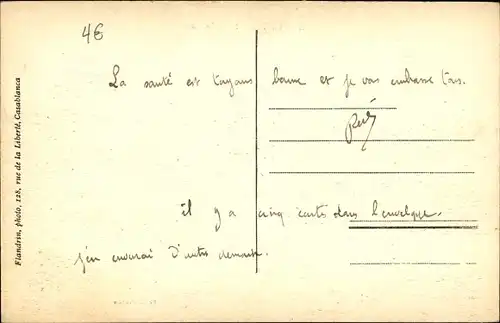 4€
La santé est toujours bonne et je vous embrasse tous.
René
il y a cinq cartes dans l'enveloppe.
j'en enverrai d'autres demain.
Flandrin, photo, 128, rue de la Liberté, Casablanca